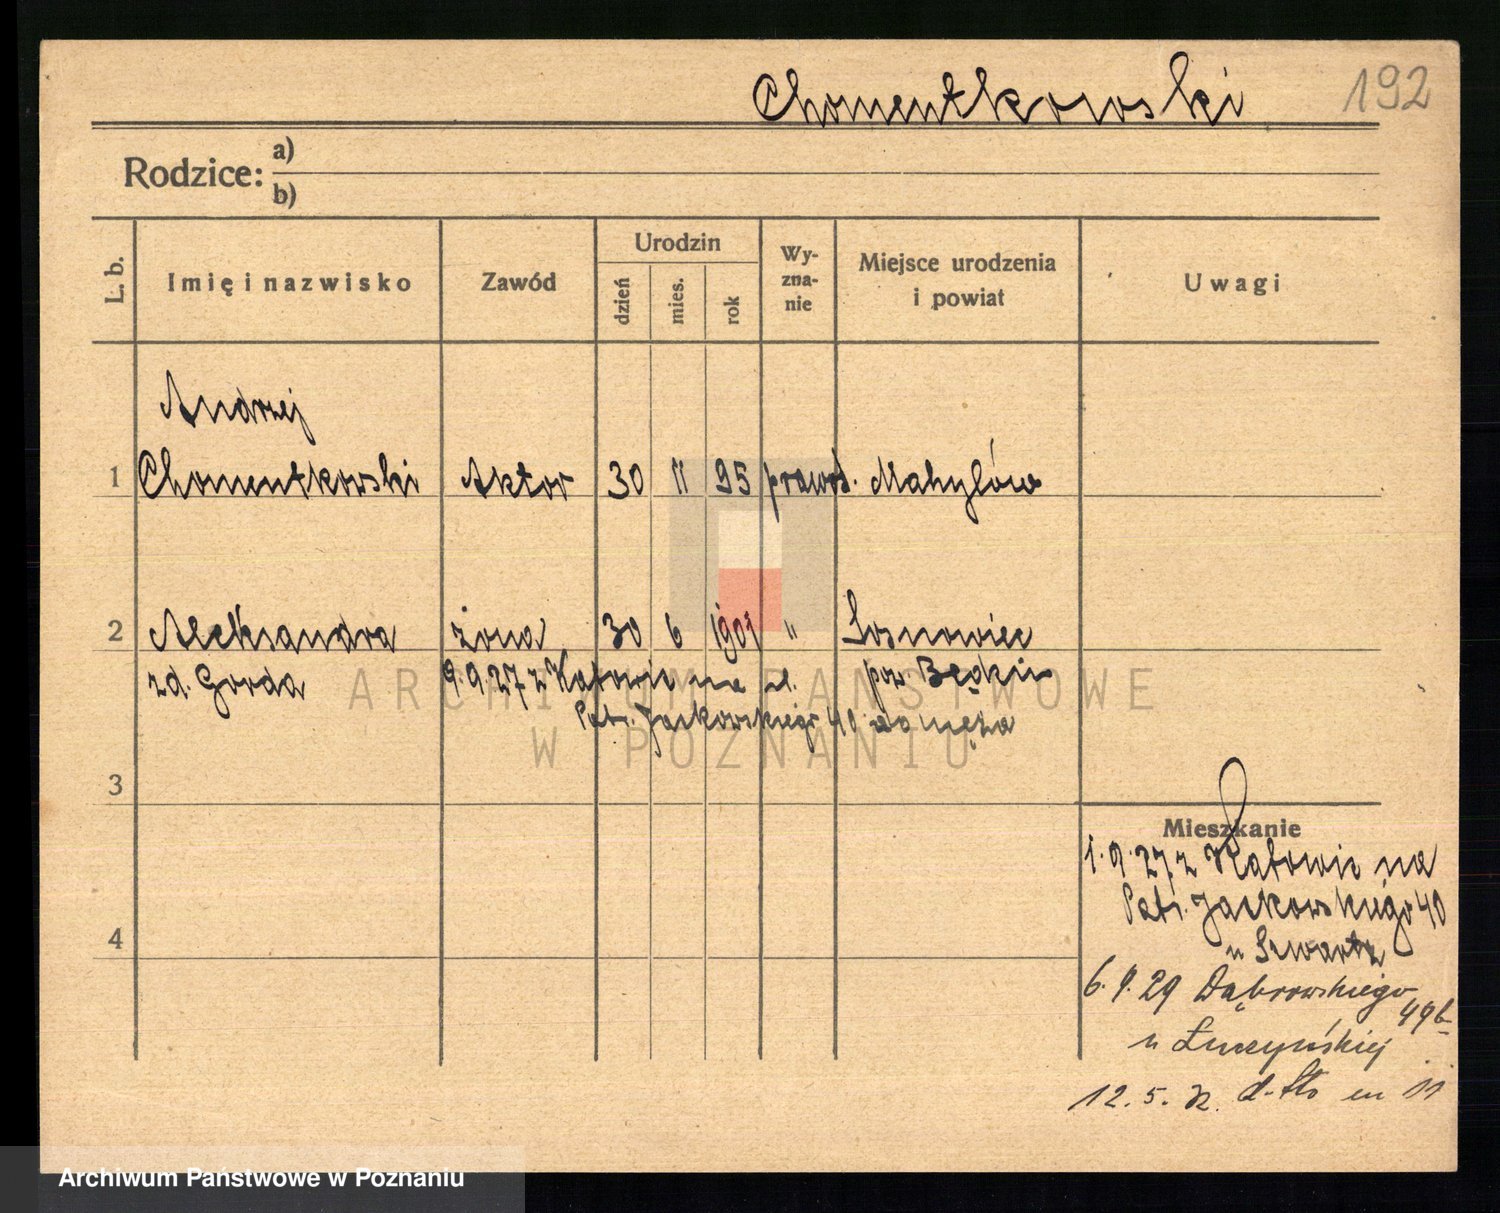 Chomentkowski 192
Rodzice: a)
b)
L. b. Imię i nazwisko Zawód Urodzin dzień mies. rok Wyznanie Miejsce urodzenia i powiat Uwagi
Andrzej
1 Chomentkowski Aktor 30 11 95 prawosł. Mahylów
2 Aleksandra żona 30 6 1901 " Sosnowiec
zd. Gorda 9.9.27 z Katowic na ul. pow Będzin
Patr. Jackowskiego 40 do męża
3
Mieszkanie
1.9.27 z Katowic na
Patr. Jackowskiego 40
u Szwartz
4
6.9.29 Dąbrowskiego
49b
u Łuczyńskiej
12.5.32. d-tto m 11
ARCHIWUM PAŃSTWOWE
W POZNANIU
Archiwum Państwowe w Poznaniu